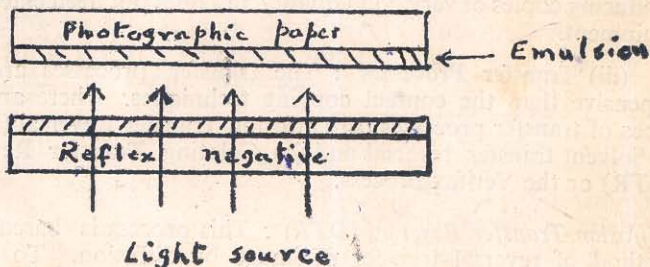 Photographic paper
Emulsion
Reflex negative
Light source